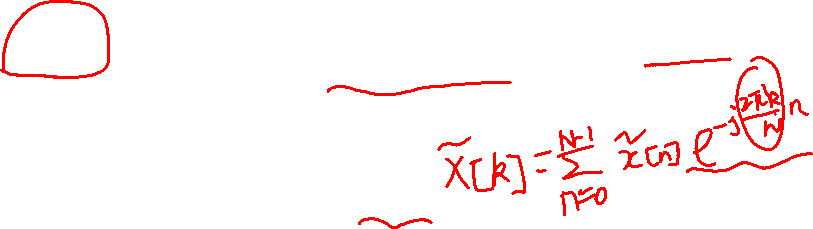 X̃[k] = \sum_{n=0}^{N-1} x̃[n] e^{-j\frac{2πk}{N}n}